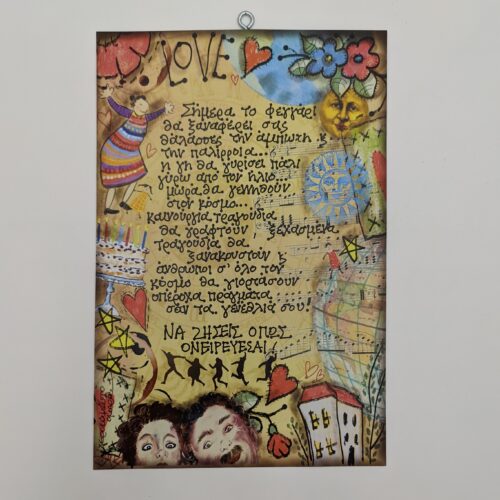 LOVE
Σήμερα το φεγγάρι
θα ξαναφέρει στις
θάλασσες την άμπωτη &
την παλίρροια...
η γη θα γυρίσει πάλι
γύρω από τον ήλιο...
μωρα θα γεννηθούν
στον κόσμο...
καινούργια τραγούδια
θα γραφτούν, ξεχασμένα
τραγούδια θα
ξανακουστούν &
άνθρωποι σ' όλο τον
κόσμο θα γιορτάσουν
υπέροχα πράγματα
σαν τα γενέθλιά σου!
ΝΑ ΖΗΣΕΙΣ ΟΠΩΣ
ΟΝΕΙΡΕΥΕΣΑΙ!